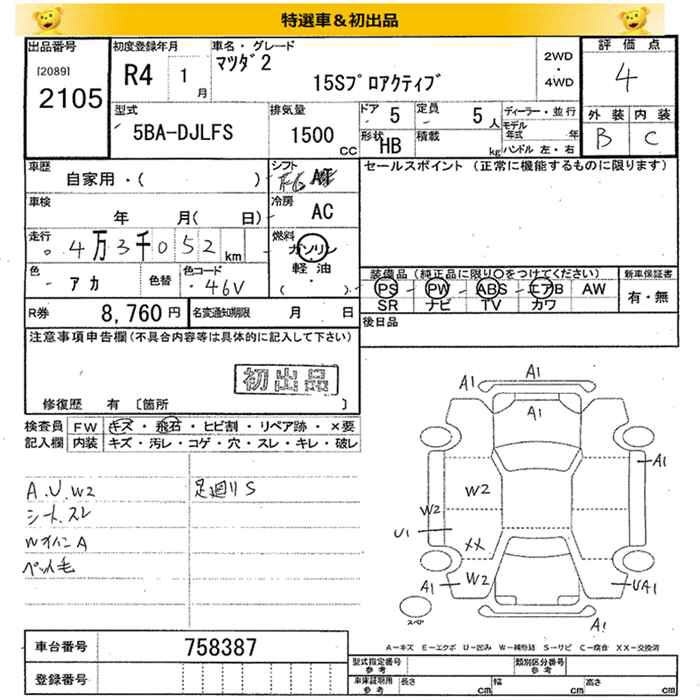 特選車＆初出品
出品番号
[2089]
2105
初度登録年月
R4 1月
車名・グレード
マツダ2
15Sプロアクティブ
2WD
・
4WD
評価点
4
外装 内装
B C
型式
5BA-DJLFS
排気量
1500 CC
ドア 5
定員 5人
形状 HB
積載 kg
ディーラー・並行
モデル年式 年
ハンドル 左・右
車歴
自家用・( )
シフト
AT
車検
年 月( 日)
冷房
AC
走行
4万3千052km
燃料
ガソリン
軽油
( ・ )
色
アカ
色替
色コード
46V
R券 8,760円
名変通知期限 月 日
セールスポイント (正常に機能するものに限ります)
装備品(純正品に限り○をつけてください)
PS PW ABS エアB AW
SR ナビ TV カワ
新車保証書
有・無
後日品
注意事項申告欄(不具合内容等は具体的に記入して下さい)
初出品
修復歴 有 〔箇所 〕
検査員記入欄
FW キズ・飛石・ヒビ割・リペア跡・×要
内装 キズ・汚レ・コゲ・穴・スレ・キレ・破レ
A.U.W2
シートスレ
WオハンA
ペット毛
足廻りS
A1
A1
A1
A1
W2
W2
U1
XX
W2
A1
UA1
A1
スペア
A－キズ E－エクボ U－凹み W－補修跡 S－サビ C－腐食 XX－交換済
車台番号 758387
登録番号
型式指定番号 参考
類別区分番号 参考
車庫証明用 参考
長さ cm 幅 cm 高さ cm